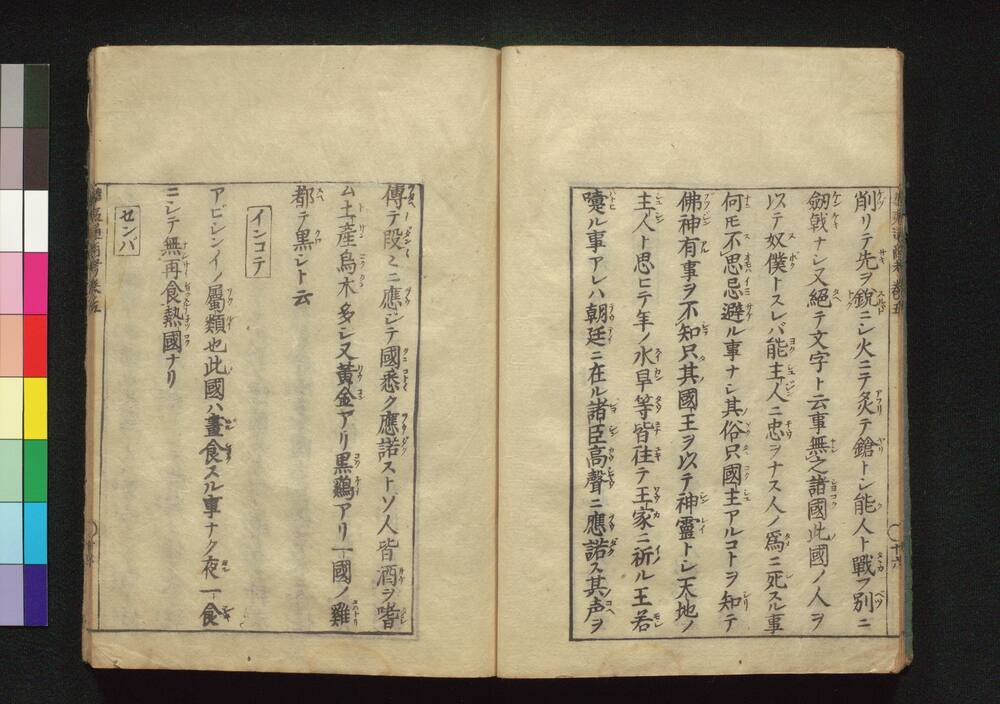 削リテ先ヲ銳ニシ火ニテ炙テ鎗トシ能人ト戰フ別ニ
劔戟ナシ又絕テ文字ト云事無之諸國此國ノ人ヲ
以テ奴僕トスレバ能主人ニ忠ヲナス人ノ爲ニ死スル事
何氏不思忌避ル事ナシ其俗只國主アルコトヲ知テ
佛神有事ヲ不知只其國王ヲ以テ神靈トシ天地ノ
主人ト思ヒテ年ノ水旱等皆往テ王家ニ祈ル王若
嚏ル事アレハ朝廷ニ在ル諸臣高聲ニ應諾ス其声ヲ
傳テ段々ニ應ジテ國悉ク應諾ストソ人皆酒ヲ嗜
ム土產烏木多シ又黃金アリ黑鷄アリ一國ノ雞
都テ黑シト云
インコテ
アビシンイノ屬類也此國ハ晝食スル事ナク夜一食
ニシテ無再食熱國ナリ
センバ